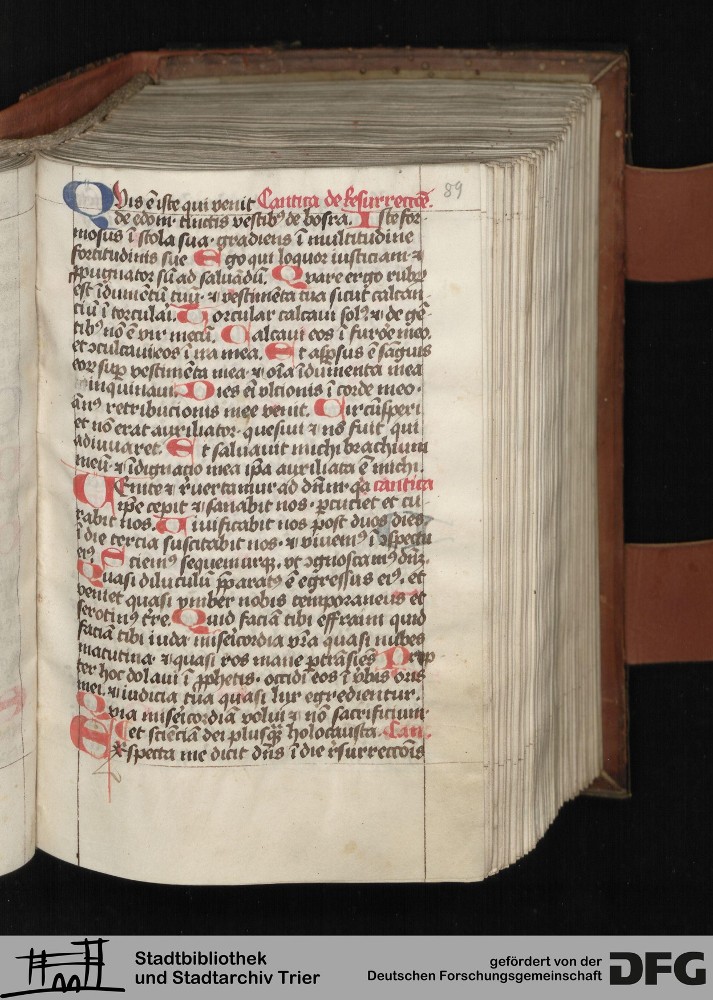 Quis ē iste qui venit Cantica de Resurrectōe. 89
de edom· tinctis vestibꝰ de bosra. Iste for
mosus ī stola sua· gradiens ī multitudine
fortitudinis sue Ego qui loquor iusticiam· ⁊
ꝓpugnator sū ad saluādū. Quare ergo rubrū
est īdumētū tuū· ⁊ vestimēta tua sicut calcan
ciū ī torculai. Torcular calcaui solꝰ· ⁊ de gē
tibꝰ nō ē vir mecū. Calcaui eos ī furore meo.
et ɔculcaui eos ī ira mea. Et aspsus ē sanguis
eoꝝ suꝑ vestimēta mea· ⁊ oīa īdumenta mea
inquinaui. Dies eī vlcionis ī corde meo·
ānꝰ retribucionis mee venit. Circūspexi
et nō erat auxiliator· quesiui ⁊ nō fuit qui
adiuuaret. Et saluauit michi brachium
meū· ⁊ īdignacio mea ipa auxiliata ē michi.
Venite ⁊ rꝰuertamur ad dn̄m· qa cantica
ipe cepit ⁊ sanabit nos· ꝑcutiet et cu
rabit nos. Uiuificabit nos post duos dies
ī die tercia suscitabit nos· ⁊ viuemꝰ ī ɔspectu
eiꝰ Sciemꝰ sequemurqꝫ, vt ɔgnoscamꝰ dn̄ꝫ·
Quasi diluculū p̄paratꝰ ē egressus eiꝰ, et
veniet quasi ymber nobis temporaneus et
serotinꝰ tr̄e. Quid faciā tibi effraim quid
faciā tibi iuda· misericordia vr̄a quasi nubes
matutina· ⁊ quasi ros mane ꝑtrāsiēs Propt
ter hoc dolaui ī ꝓphetis· occidi eos ī v̄bis oris
mei· ⁊ iudicia tua quasi lux egredientur.
Quia misericordiā volui ⁊ nō sacrificium·
et scienciā dei plusqꝫ holocausta. Can.
Exspecta me dicit dn̄s ī die rꝰsurrectōis
Stadtbibliothek
und Stadtarchiv Trier
gefördert von der
Deutschen Forschungsgemeinschaft DFG